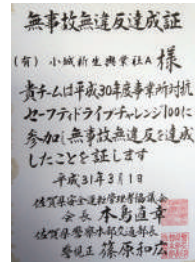 無事故無違反達成証
(有) 小城新生興業社A 様
貴チームは平成30年度事業所対抗
セーフティドライブチャレンジ100に
参加し無事故無違反を達成
したことを証します
平成31年3月1日
佐賀県安全運転管理者協議会
会長 本島直幸
佐賀県警察本部交通部長
警視正 篠原和広